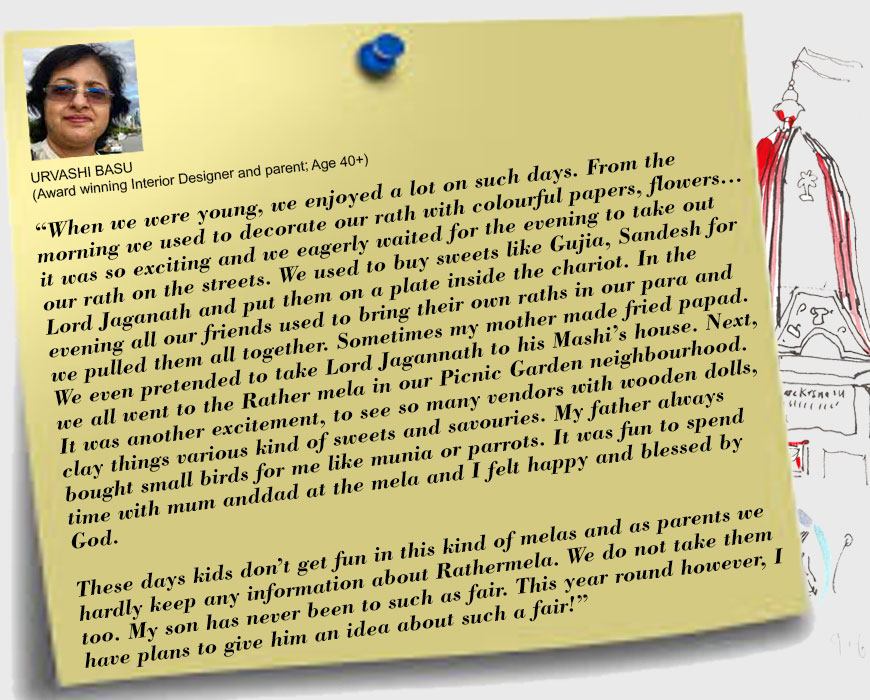 URVASHI BASU
(Award winning Interior Designer and parent; Age 40+)
“When we were young, we enjoyed a lot on such days. From the
morning we used to decorate our rath with colourful papers, flowers...
it was so exciting and we eagerly waited for the evening to take out
our rath on the streets. We used to buy sweets like Gujia, Sandesh for
Lord Jaganath and put them on a plate inside the chariot. In the
evening all our friends used to bring their own raths in our para and
we pulled them all together. Sometimes my mother made fried papad.
We even pretended to take Lord Jagannath to his Mashi’s house. Next,
we all went to the Rather mela in our Picnic Garden neighbourhood.
It was another excitement, to see so many vendors with wooden dolls,
clay things various kind of sweets and savouries. My father always
bought small birds for me like munia or parrots. It was fun to spend
time with mum anddad at the mela and I felt happy and blessed by
God.
These days kids don’t get fun in this kind of melas and as parents we
hardly keep any information about Rathermela. We do not take them
too. My son has never been to such as fair. This year round however, I
have plans to give him an idea about such a fair!”